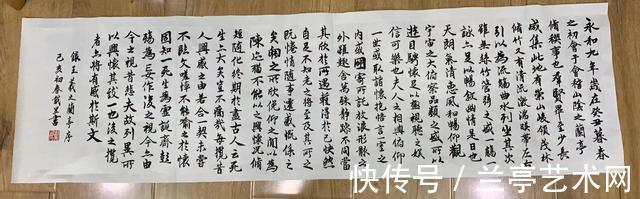 永和九年歲在癸丑暮春
之初會于會稽山陰之蘭亭
脩稧事也羣賢畢至少長
咸集此地有崇山峻領茂林
脩竹又有清流激湍暎帶左右
引以為流觴曲水列坐其次
雖無絲竹管弦之盛一觴一
詠亦足以暢敘幽情是日也
天朗氣清惠風和暢仰觀
宇宙之大俯察品類之盛
遊目騁懷足以極視聽之娛
信可樂也夫人之相與俯仰
一世或取諸懷抱悟言一室之
內或因寄所託放浪形骸之
外雖趣舍萬殊靜躁不同當
其欣於所遇暫得於己快然
自足不知老之將至及其所之
既惓情隨事遷感慨係之
矣向之所欣俛仰之閒以為
陳迹猶不能不以之興懷況脩
短隨化終期於盡古人云死
生亦大矣豈不痛哉每攬昔
人興感之由若合一契未嘗
不臨文嗟悼不能喻之於懷
固知一死生為虛誕齊彭
殤為妄作後之視今亦由
今之視昔悲夫故列異所
以興懷其致一也後之攬
者亦將有感於斯文
錄王羲之蘭亭序
己亥初春書
快传号/兰亭艺术网